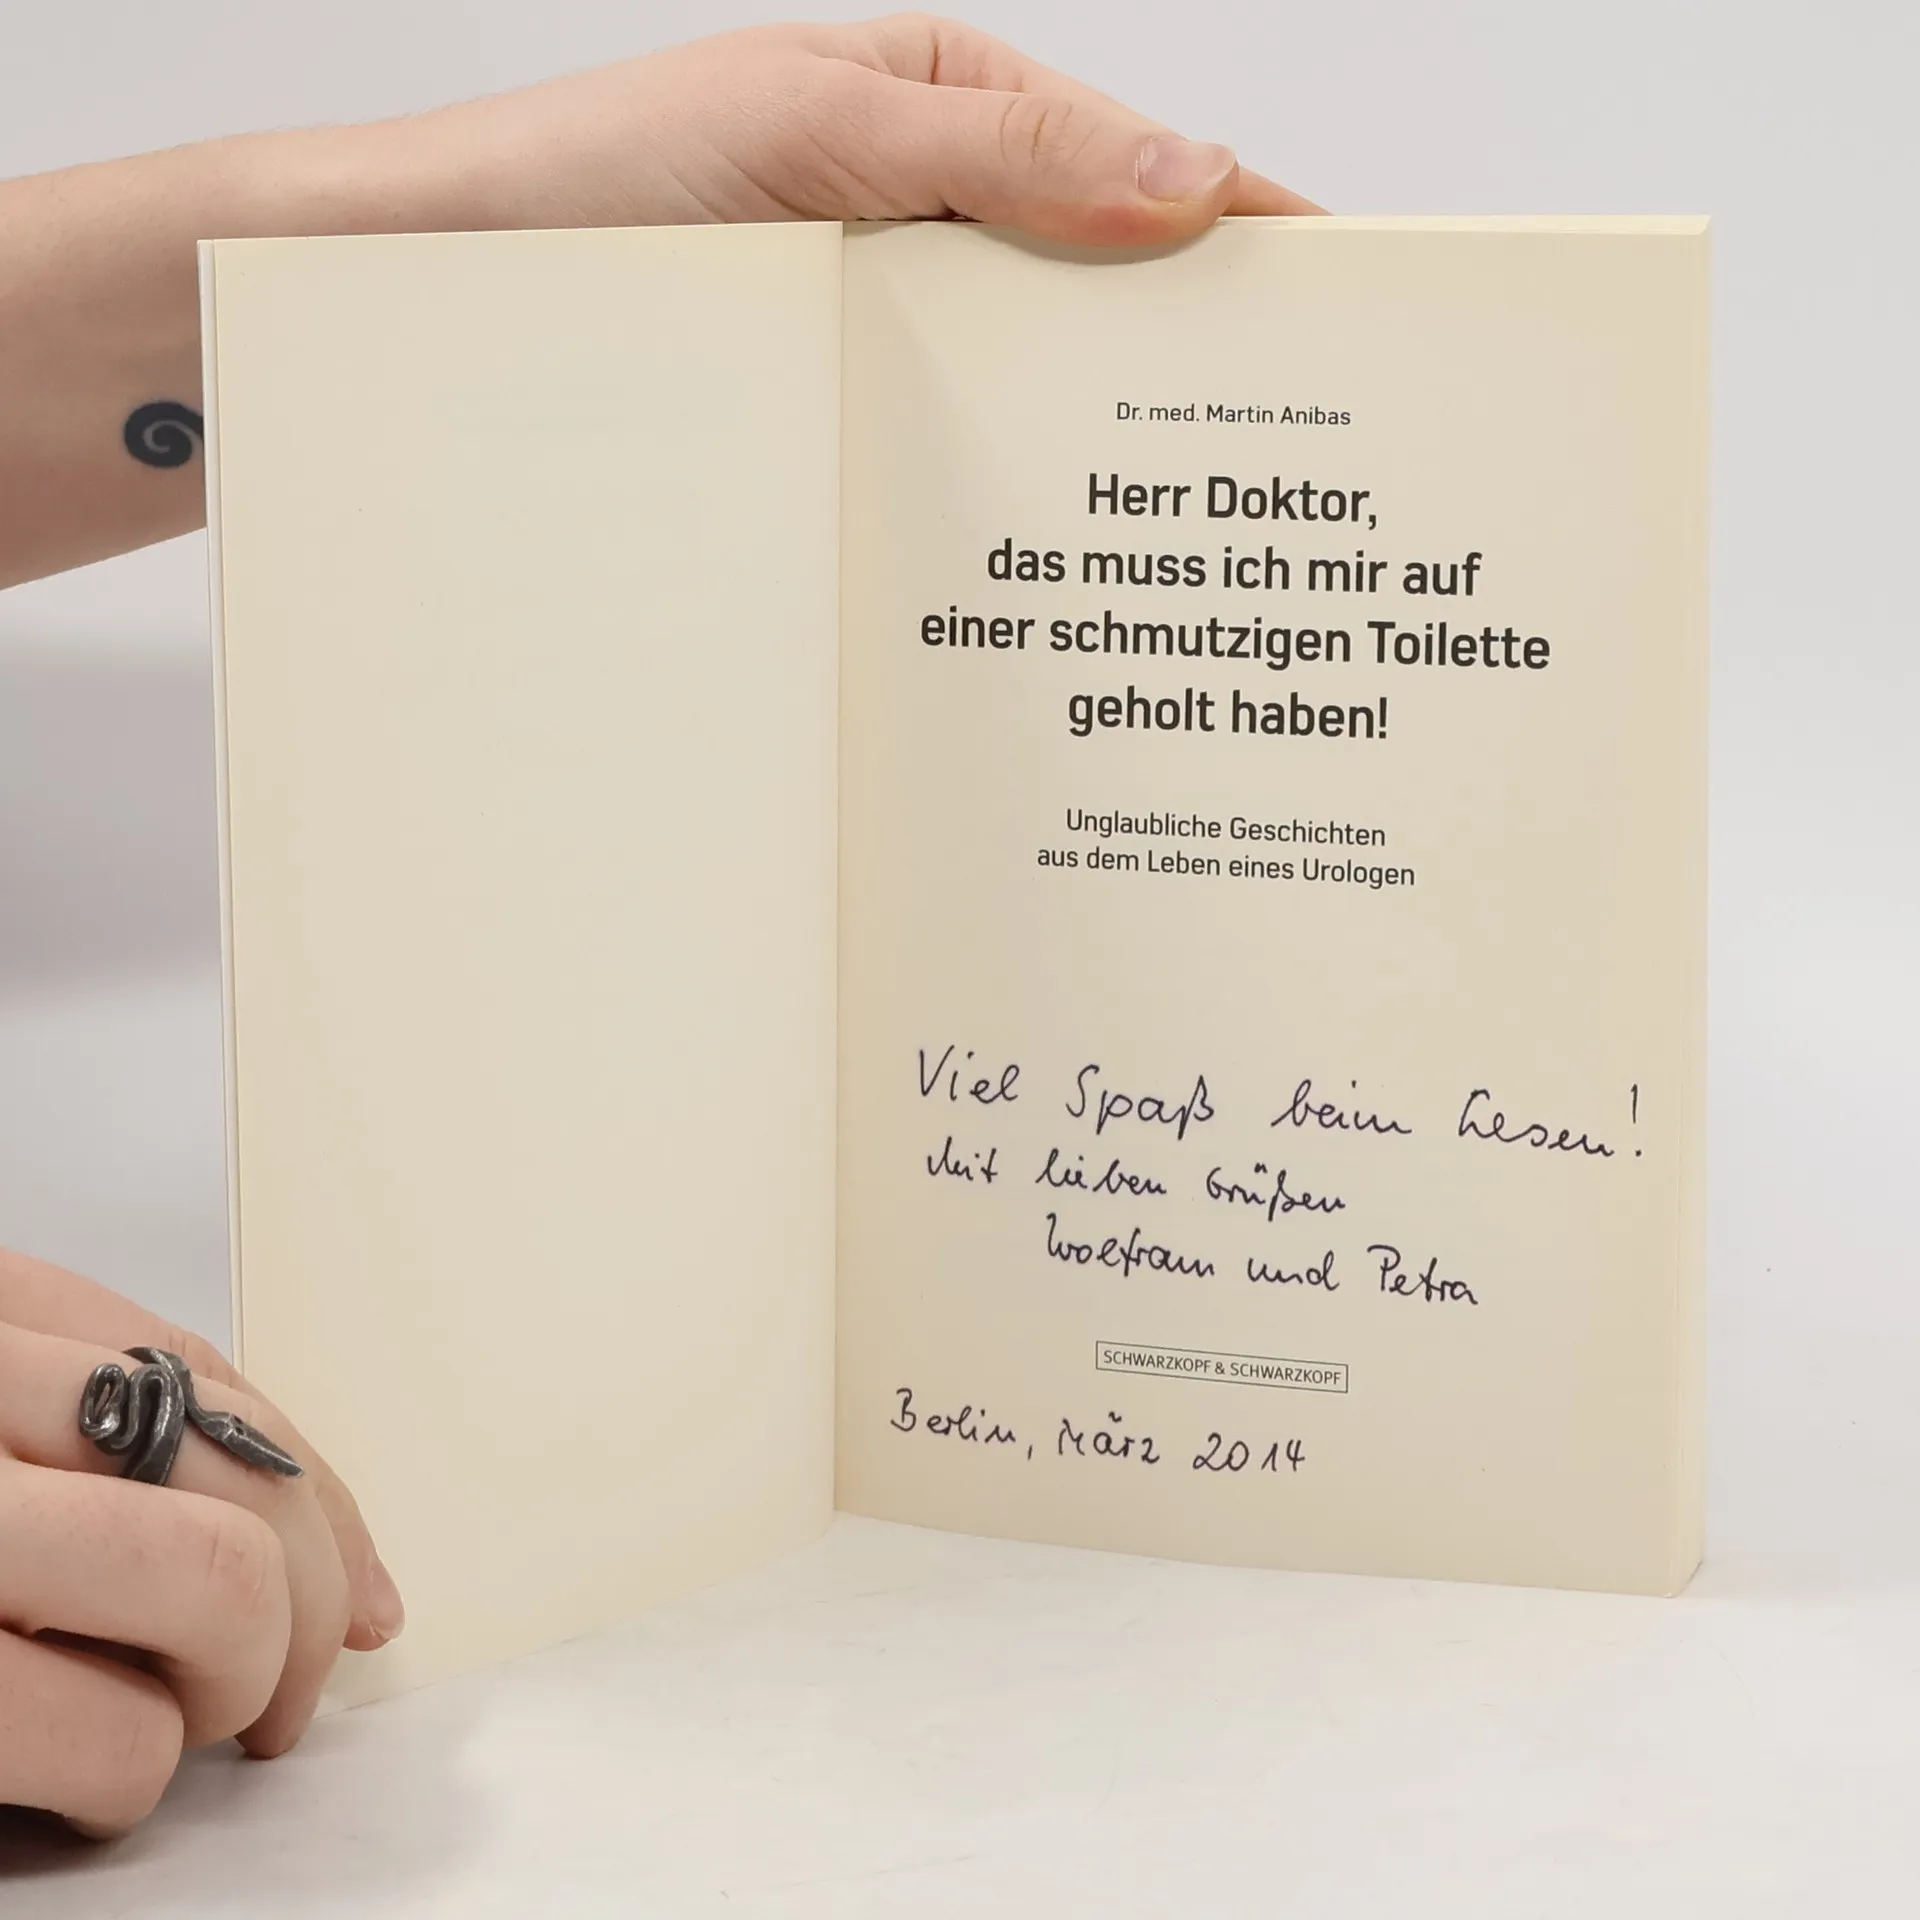 Dr. med. Martin Anibas
Herr Doktor,
das muss ich mir auf
einer schmutzigen Toilette
geholt haben!
Unglaubliche Geschichten
aus dem Leben eines Urologen
Viel Spaß beim Lesen!
Mit lieben Grüßen
Wolfram und Petra
SCHWARZKOPF & SCHWARZKOPF
Berlin, März 2014